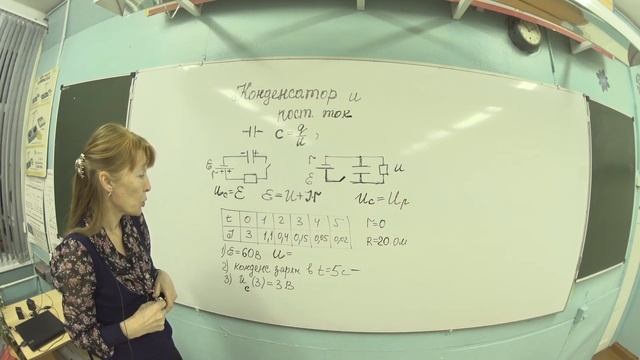 Конденсатор и
пост. ток
C = q/u ,
ε
r
+ +
- +
r
ε
u
Uc = ε
ε = U + Ir
Uc = UR
t 0 1 2 3 4 5
I 3 1,1 0,4 0,15 0,05 0,02
r=0
R=20 ом
1) ε=60В U=
2) конденс заряж в t=5c –
3) Uc (3) = 3 В